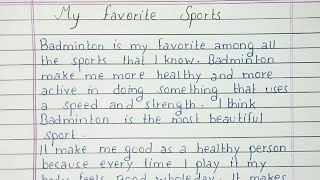 My Favorite Sports
Badminton is my favorite among all
the sports that I know. Badminton
make me more healthy and more
active in doing something that uses
a speed and strength. I think
Badminton is the most beautiful
sport.
It make me good as a healthy person
because every time I play it my
body feels good wholeday. It makes